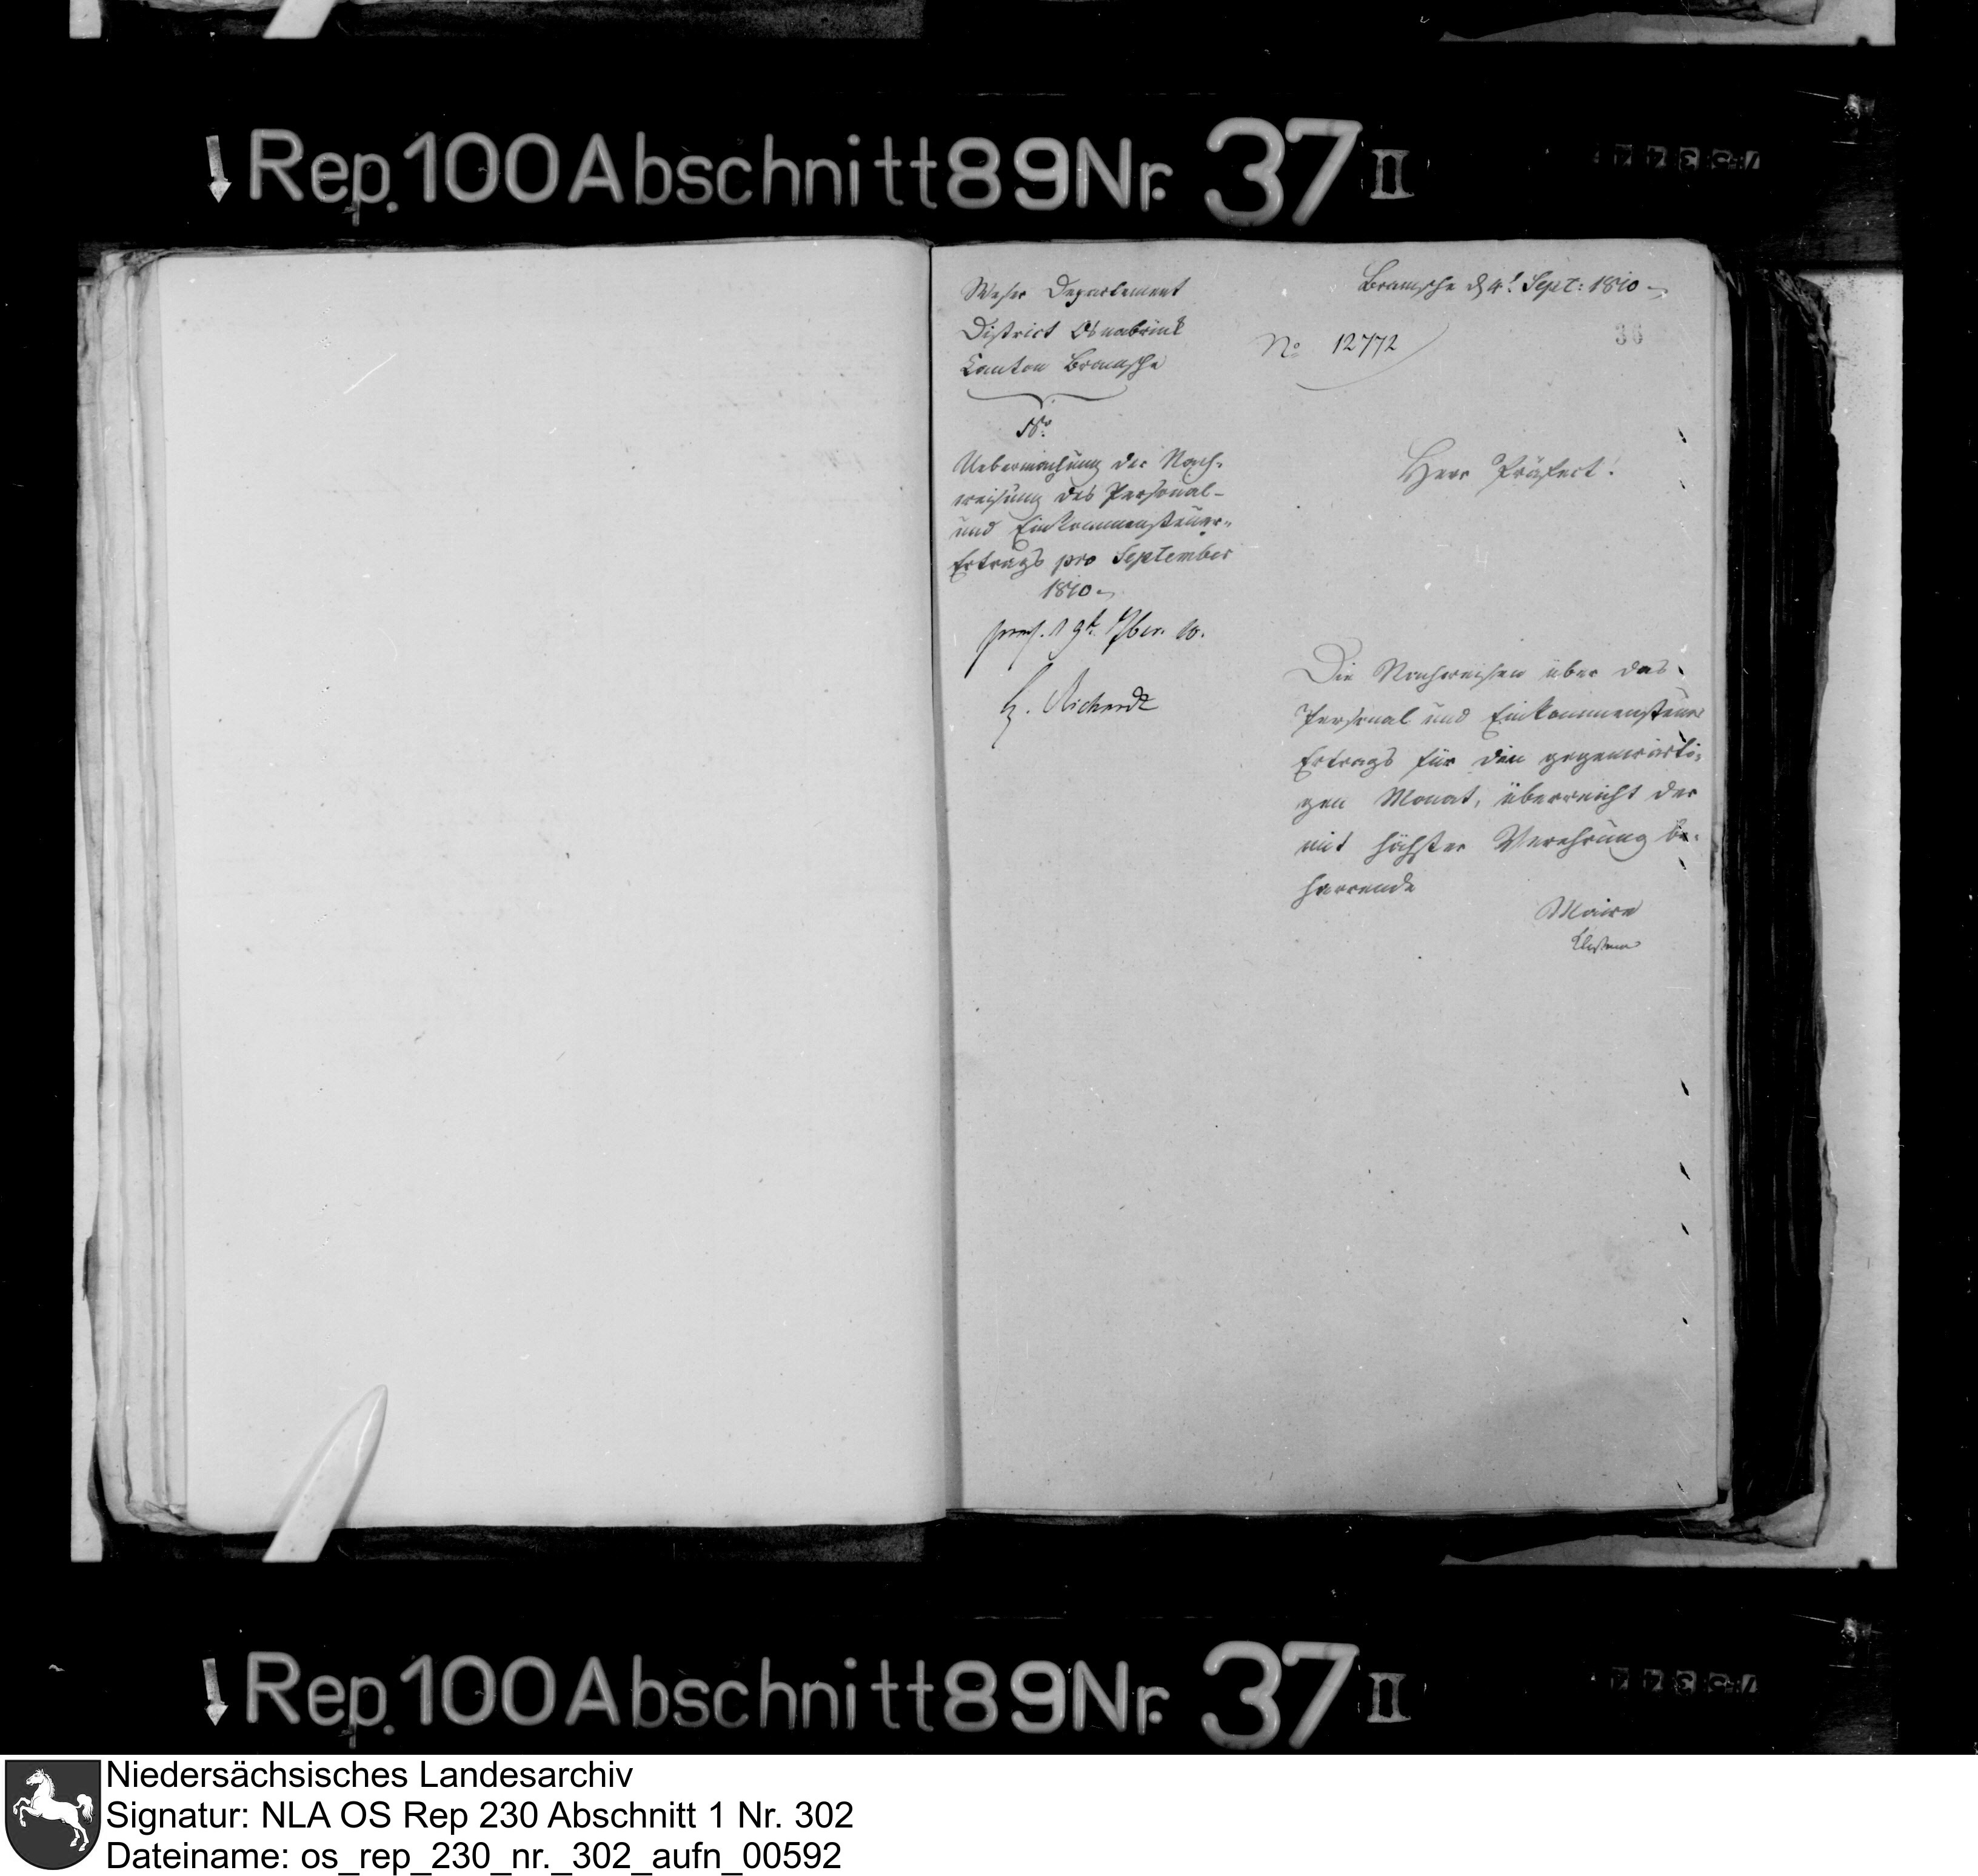 Rep. 100 Abschnitt 89 Nr. 37 II
Weser Departement
District Osnabrück
Canton Bramsche
Bramsche d 4t Sept: 1810
No 12772
36
Uebermachung der Nach-
weisung des Personal-
und Einkommensteuer-
Ertrags pro September
1810
Herr Präfect!
praes. 19t. 7ber. 10.
Die Nachweisen über das
Personal und Einkommensteuer
Ertrags für den gegenwärti-
gen Monat, überreicht der
mit höchster Verehrung be-
harrende
Maire
Rep. 100 Abschnitt 89 Nr. 37 II
Niedersächsisches Landesarchiv
Signatur: NLA OS Rep 230 Abschnitt 1 Nr. 302
Dateiname: os_rep_230_nr._302_aufn_00592